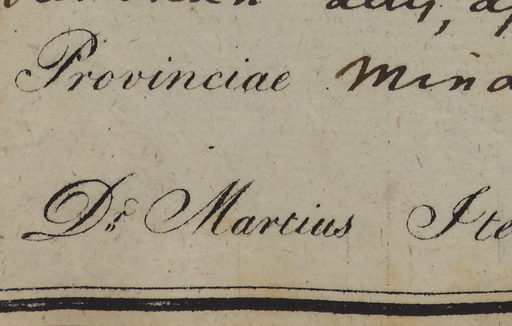 Provinciae Mina
Dr. Martius Ite